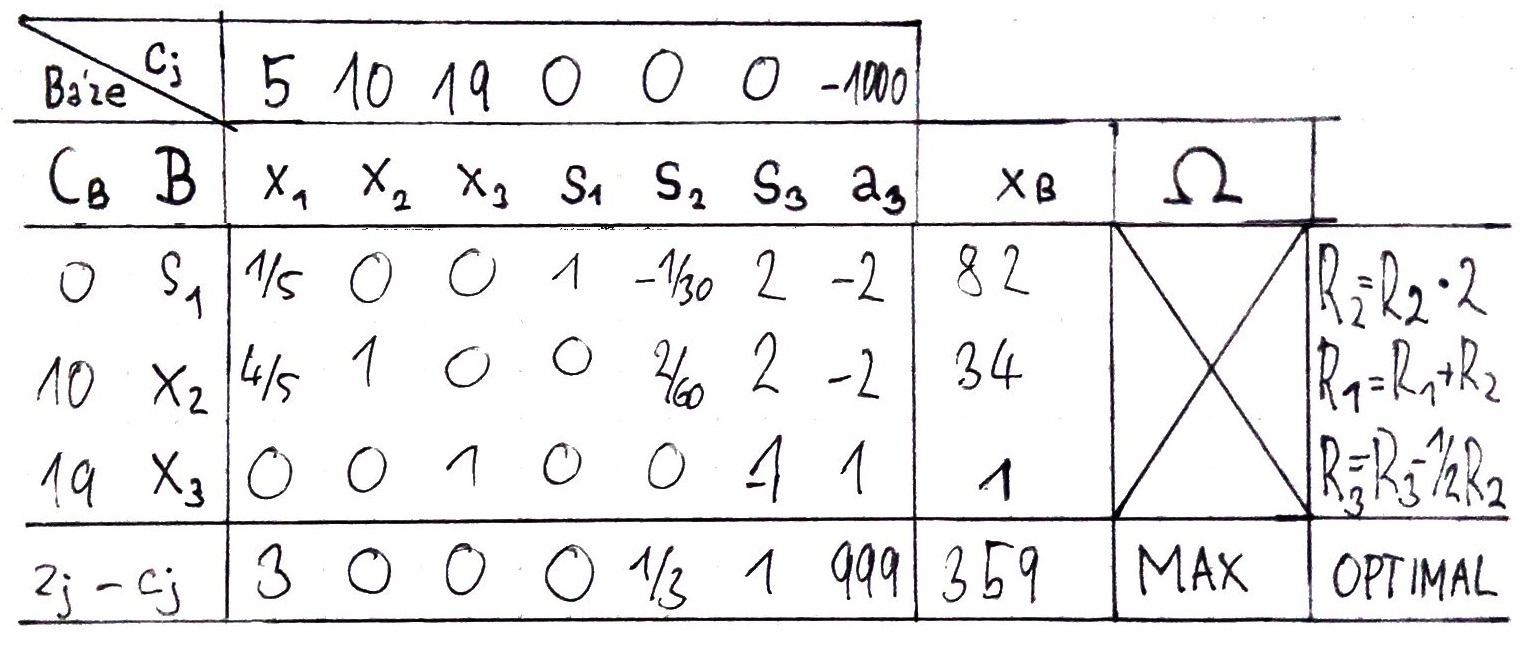 Cj
Báze 5 10 19 0 0 0 -1000
CB B x1 x2 x3 S1 S2 S3 a3 XB Ω
0 S1 1/5 0 0 1 -1/30 2 -2 82 R2=R2·2
10 X2 4/5 1 0 0 2/60 2 -2 34 R1=R1+R2
19 X3 0 0 1 0 0 -1 1 1 R3=R3-1/2R2
zj-cj 3 0 0 0 1/3 1 999 359 MAX OPTIMAL